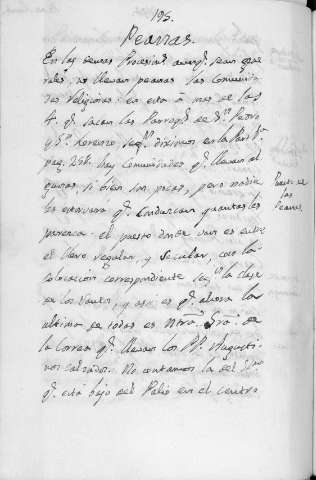 195.
Peanas.
En las demas Procesion.s aunq.e sean gene
rales, no llevan peanas las Comunida
des Religiosas: en esta à mas de las
4. q.e sacan las Parroq.s de S.n Pedro
y S.n Lorenzo seg.n diximos en la
pag. 258. hay Comunidades q.e llevan al
gunas, si bien son pocas, pero nadie
les estorvará q.e conduzcan quantas les
parezca. el puesto donde van es entre
el Clero regular, y secular, con la
colocacion correspondiente seg.n la clase
de los Santos, y asi es q.e ahora la
ultima de todas es Ntra. Sra. de
la Correa q.e llevan los PP. Agusti
nos calzados. No contamos la del
q.e está bajo del Palio en el centro
Puesto de
las
Peanas